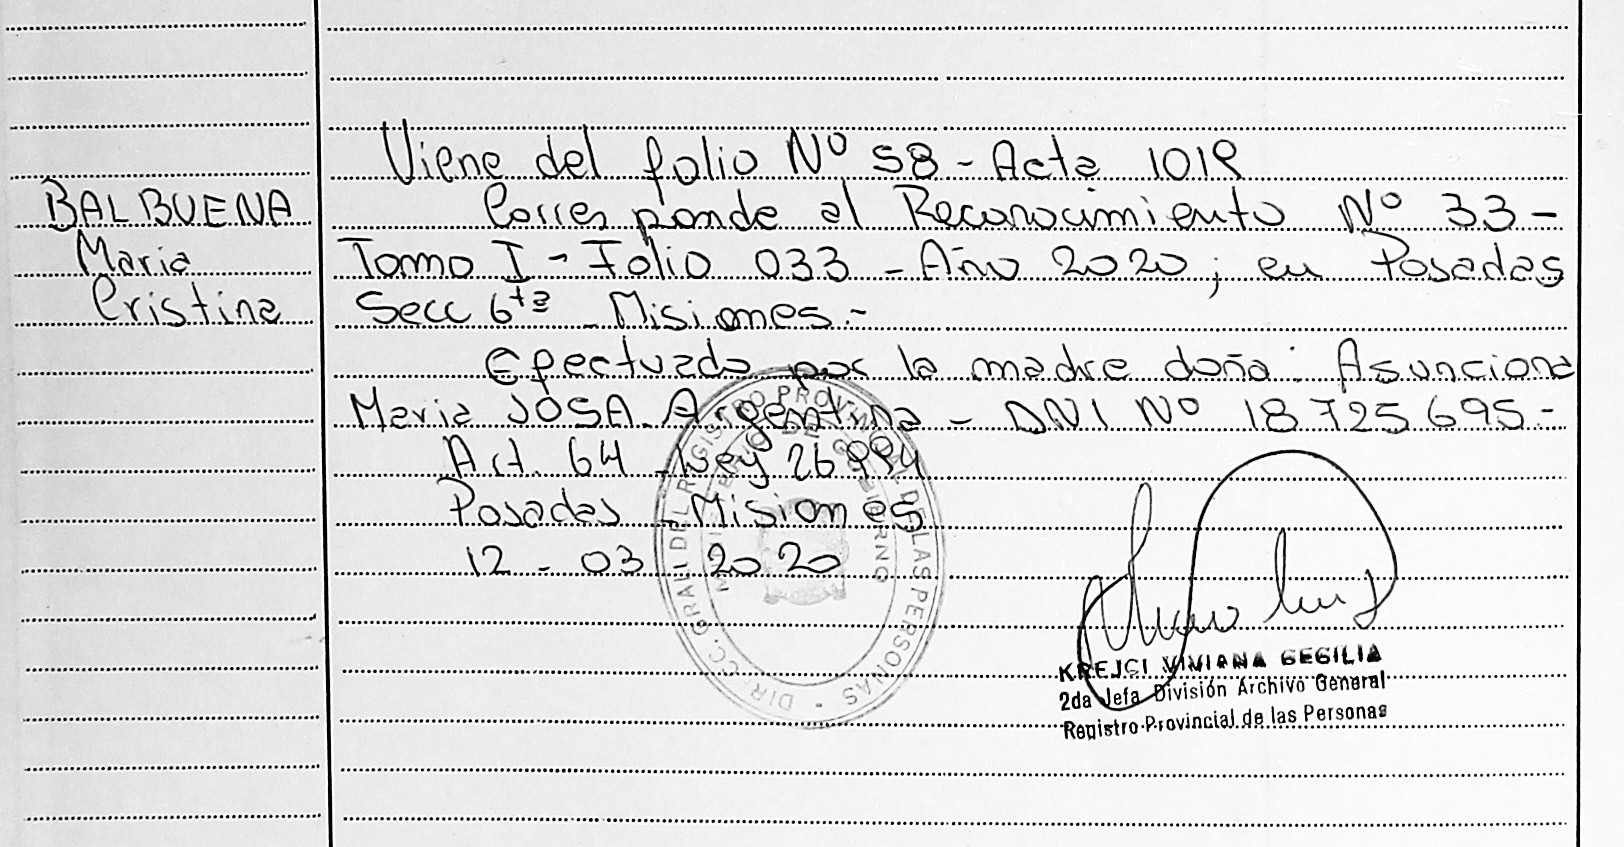 Viene del folio Nº 58 - Acta 1019
BALBUENA
Maria
Cristina
Corresponde al Reconocimiento Nº 33 -
Tomo I - Folio 033 - Año 2020; en Posadas
Secc 6ta - Misiones.-
Efectuado por la madre doña: Asunciona
Maria JOSA - Argentina - DNI Nº 18725695.-
Art. 64 - Ley 26994
Posadas - Misiones
12 - 03 - 2020
DIRECC. GRAL. DEL REGISTRO PROVINCIAL DE LAS PERSONAS -
MINISTERIO DE GOBIERNO
KREJCI VIVIANA CECILIA
2da Jefa División Archivo General
Registro Provincial de las Personas